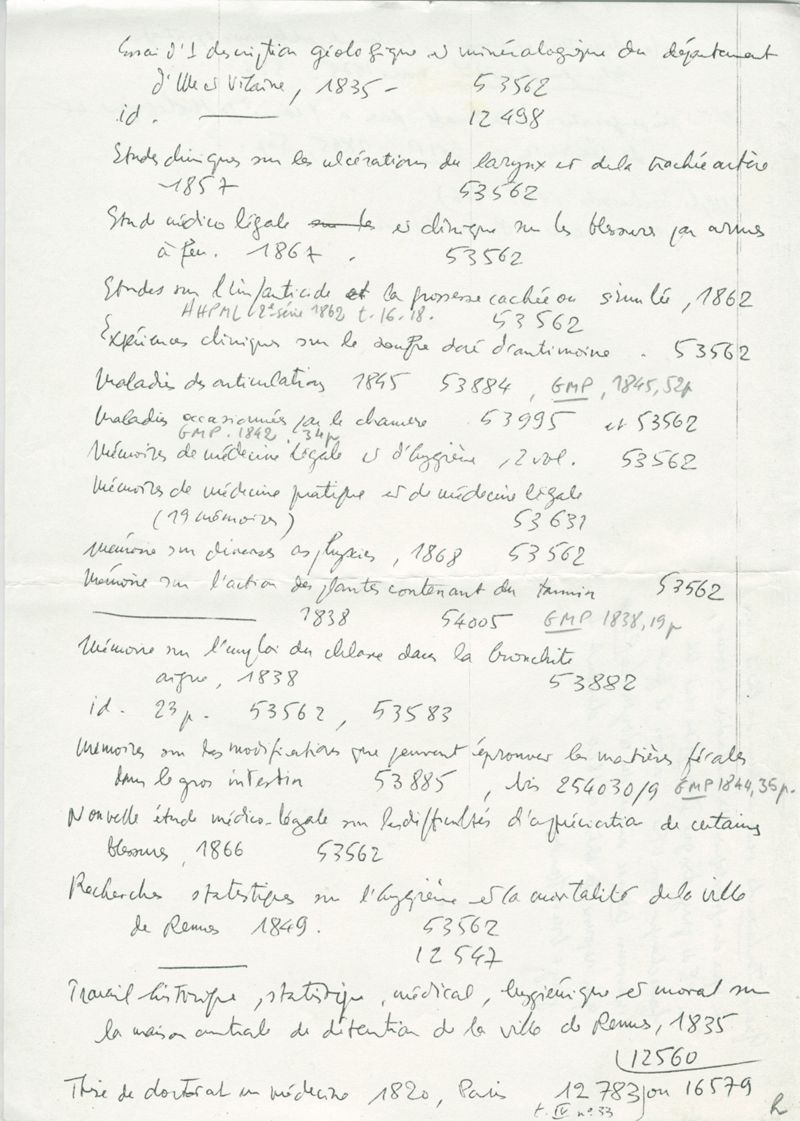 Essai d'1 description géologique et minéralogique du département
d'Ille et Vilaine, 1835 – 53562
id. 12498
Etudes cliniques sur les ulcérations du larynx et de la trachée artère
1857 53562
Etude médico légale sur les et clinique sur les blessures par armes
à feu. 1867. 53562
Etudes sur l'infanticide et la grossesse cachée ou simulée, 1862
AHPML 2e série 1862 t. 16-18. 53562
Expériences cliniques sur le soufre doré d'antimoine. 53562
Maladies des articulations 1845 53884, GMP, 1845, 52p
Maladies occasionnées par le chanvre 53995 et 53562
GMP. 1842, 34p
Mémoires de médecine légale et d'hygiène, 2 vol. 53562
Mémoires de médecine pratique et de médecine légale
(19 mémoires) 53631
Mémoire sur diverses asphyxies, 1868 53562
Mémoire sur l'action des plantes contenant du tannin 53562
1838 54005 GMP 1838, 19p
Mémoire sur l'emploi du chlore dans la bronchite
aigue, 1838 53882
id. 23p. 53562, 53583
Mémoires sur les modifications que peuvent éprouver les matières fécales
dans le gros intestin 53885, bis 254030/9 GMP 1844, 35p.
Nouvelle étude médico-légale sur les difficultés d'appréciation de certaines
blessures, 1866 53562
Recherches statistiques sur l'hygiène et la mortalité de la ville
de Rennes 1849. 53562
12547
Travail historique, statistique, médical, hygiénique et moral sur
la maison centrale de détention de la ville de Rennes, 1835
12560
Thèse de doctorat en médecine 1820, Paris 12783 ou 16579
t. IV n° 33